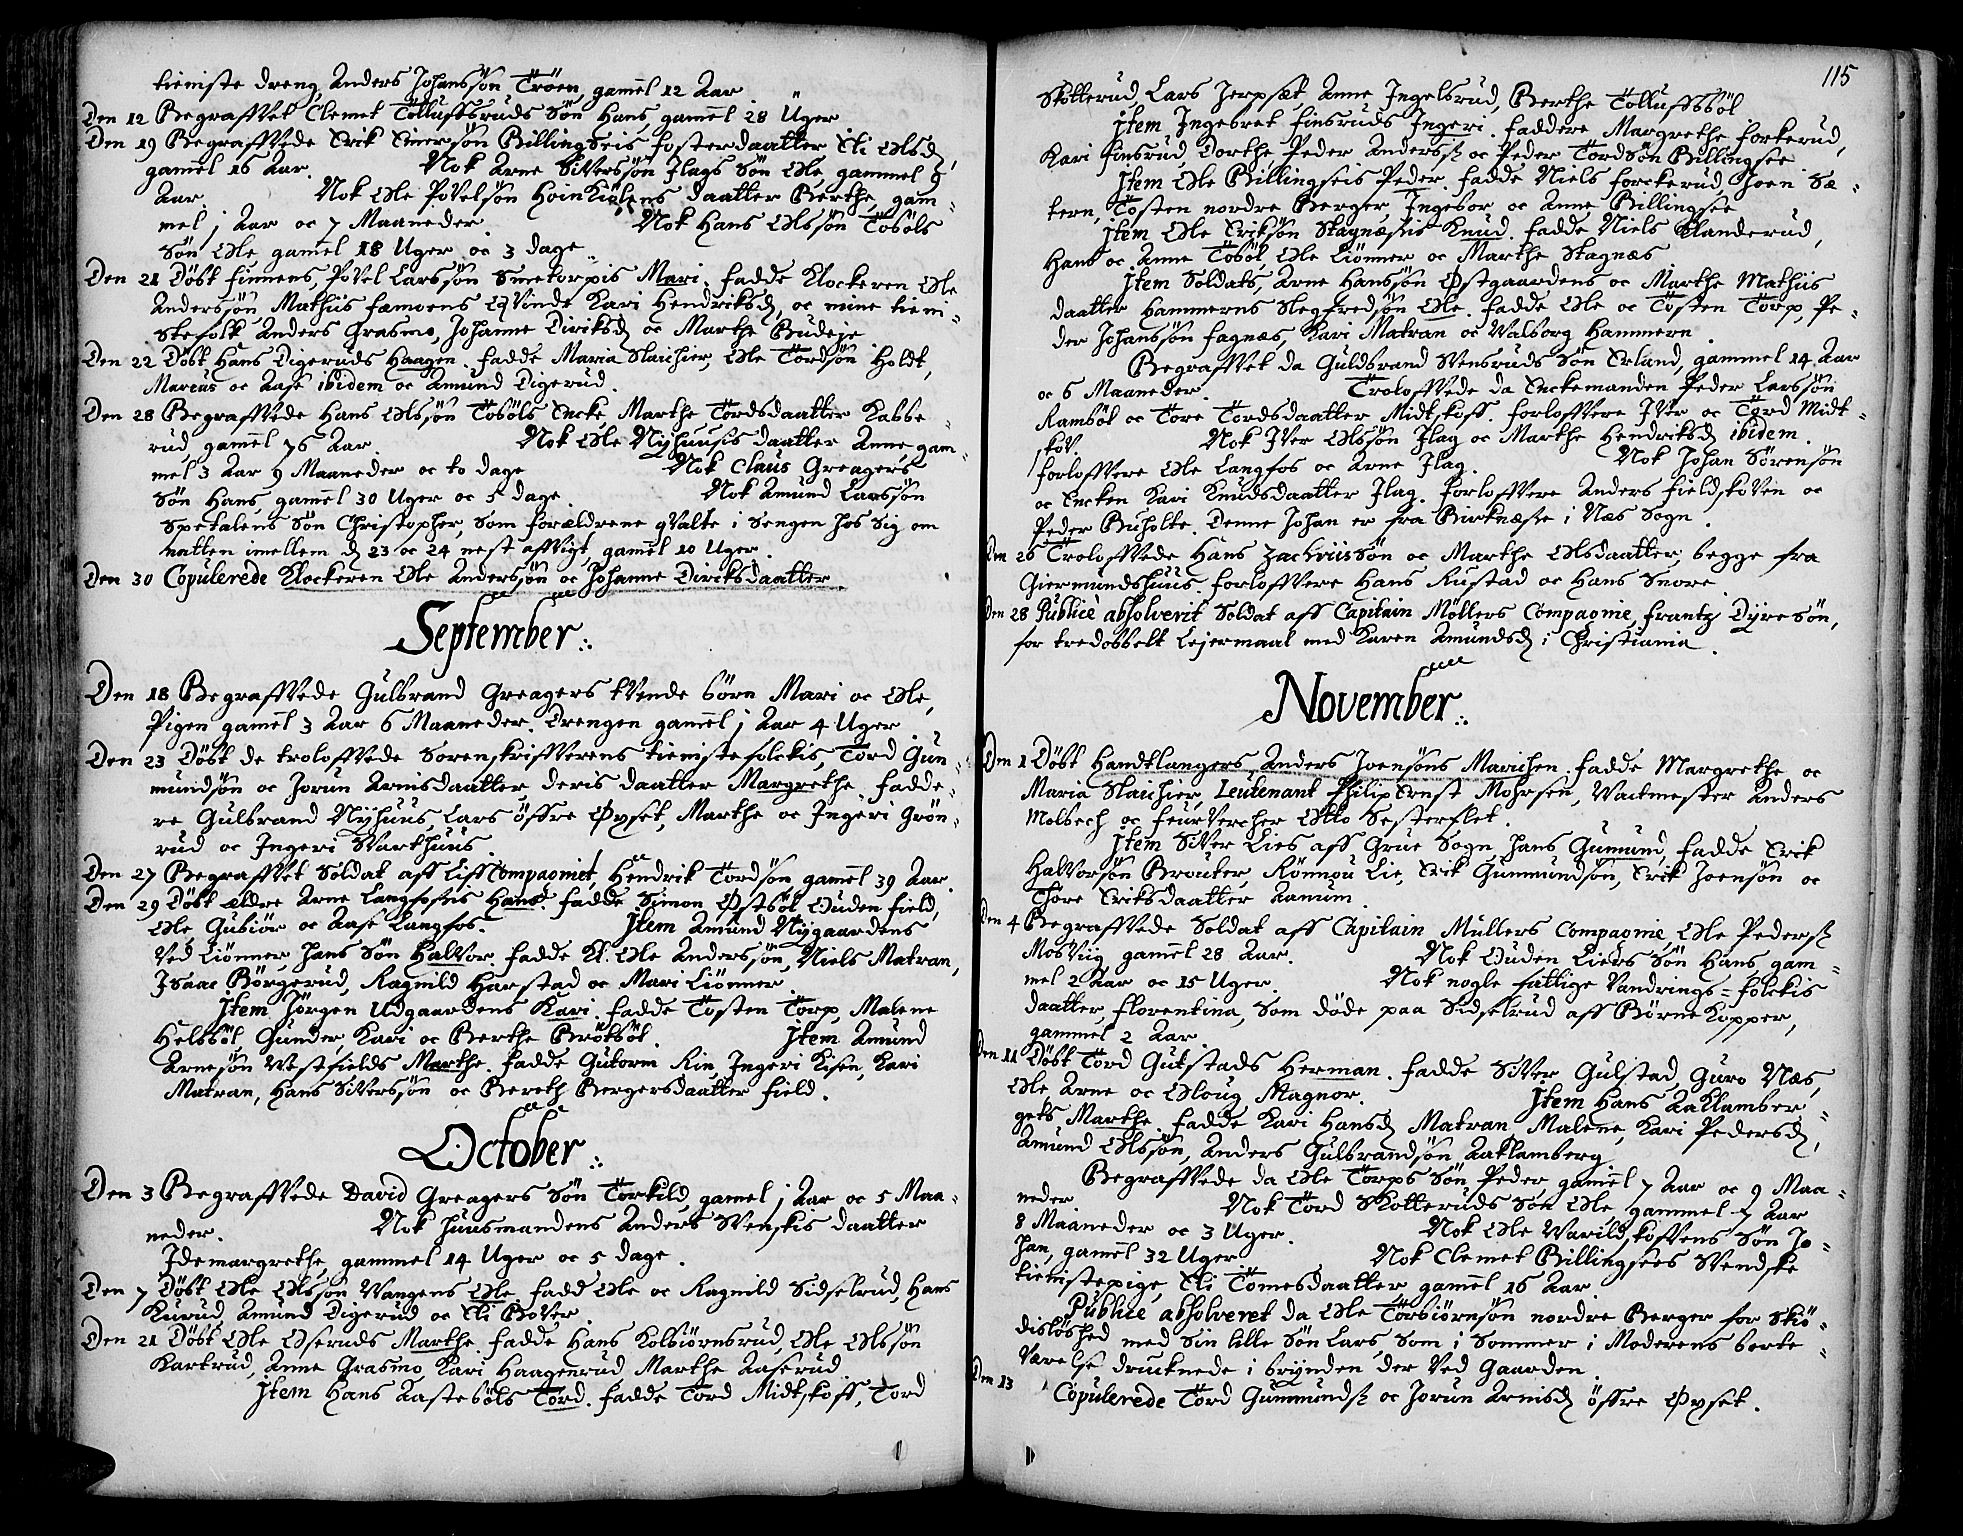 tieniste dreng, Anders Johanssön Tröen, gamel 12 Aar
Den 12 Begraffvet Clemet Tölluffsruds Sön Hans, gamel 28 Uger
Den 19 Begraffvede Erik Einersön Billingseis fosterdaatter Eli Olsd,
gamel 16 Aar. Nok Arne Siverssön Jlags Sön Ole, gammel 9
Aar. Nok Ole Povelsön Hoinkiölens daatter Berthe, gam-
mel j Aar oc 7 Maaneder. Nok Hans Olssön Töböls
Sön Ole gamel 18 Uger oc 3 dage
Den 21 Döbt finnens, Povel Larssön Smetorpis Mari. fadde Klockeren Ole
Anderssön, Mathiis famoens Qvinde Kari Hendriksd, oc mine tieni-
stefolk Anders Grasmo, Johanne Diriksd oc Marthe Budeje
Den 22 Döbt Hans Digeruds Haagen. fadde Maria Slaichier, Ole Tordsön Holdt,
Marcus oc Aase ibidem oc Amund Digerud.
Den 28 Begraffvede Hans Olssön Töböls Encke Marthe Tordsdaatter Kabbe-
rud, gamel 76 Aar. Nok Ole Nyhuusis daatter Anne gam-
mel 3 Aar 9 Maaneder oc to dage Nok Claus Greagers
Sön Hans, gamel 30 Uger oc 5 dage Nok Amund Larssön
Spetalens Sön Christopher, som forældrene qvalte i Sengen hos sig om
natten imellem d 23 oc 24 nest affvigt, gamel 10 Uger.
Den 30 Copulerede Klockeren Ole Anderssön oc Johanne Dircksdaatter
September
Den 18 Begraffvede Gulbrand Greagers tvende börn Mari oc Ole,
Pigen gamel 3 Aar 6 Maaneder. Drengen gamel j Aar 4 Uger
Den 23 Döbt de troloffvede Sorenskrifverens tienistefolckis, Tord Gun-
mundsön oc Jorun Arnisdaatter, deris daatter Margrethe. fadde-
re Gulbrand Nyhuus, Lars öffre Öyset, Marthe oc Ingeri Grön-
rud oc Ingeri Varkhuus
Den 27 Begraffvet Soldat aff Liff Compagniet, Hendrik Tordsön gamel 39 Aar.
Den 29 Döbt ældre Arne Langfossis Hans. fadde Simon Östböl Ouden field,
Ole Gubiör oc Aase Langfos. Jtem Amund Nygaardens
ved Liönner, hans Sön Halvor. fadde Kl. Ole Anderssön, Niels Matran,
Isaac Börgerud, Ragnild Harstad oc Mari Liönner
Jtem Jörgen Udgaardens Kari. fadde Tosten Torp, Malene
Helböl, Gunder, Kari oc Berthe Bröböl. Jtem Amund
Arnesön Vestfields Marthe. fadde Gutorm Rin, Ingeri Kisen, Kari
Matran, Hans Siverssön oc Bereth Bergersdaatter field.
October
Den 3 Begraffvede David Greagers Sön Törkild gamel j Aar oc 5 Maa-
neder. Nok Huusmandens Anders Svenskis daatter
Idemargrethe, gammel 14 Uger oc 5 dage.
Den 7 Döbt Ole Olssön Vangens Ole. fadd Ole oc Ragnild Sidselrud, Hans
Kurud, Amund Digerud oc Eli Bover
Den 21 Döbt Ole Oseruds Marthe. fadde Hans Kolbiörnsrud, Ole Olssön
Kartrud, Anne Grasmo, Kari Haagenrud Marthe Aaserud
Jtem Hans Aasteböls Tord. fadde Tord Midtskoff, Tord
115
Skötterud, Lars Jerpset Anne Ingelsrud, Berthe Tölluffsböl
Jtem Ingebret finsruds Ingeri. faddere Margrethe forkerud,
Kari finsrud, Dorthe, Peder Anderss oc Peder Tordsön Billingsee
Jtem Ole Billingseis Peder. fadde Niels forckerud, Joen Sæ-
tern, Tösten nordre Berger, Ingebor oc Anne Billingsee
Jtem Ole Eriksön Skagnæssis Knud. fadde Niels Klanderud,
Hans oc Anne Töböl, Ole Liönner oc Marthe Skagnæs
Jtem Soldats, Arne Hanssön Östgaardens oc Marthe Mathiis
daatter Hammerns Slegfredsön Ole. fadde Ole oc Tösten Torp, Pe-
der Johanssön fagnæs, Kari Matran oc Valborg Hammern.
Begraffvet da Guldbrand Svensruds Sön Erland, gammel 14 Aar
oc 6 Maaneder. Troloffvede da Enckemanden Peder Larssön
Ramböl oc Tore Tordsdaatter Midtskoff. forloffvere Iver oc Tord Midt-
skov. Nok Iver Olssön Jlag oc Marthe Hendriksd ibidem.
forloffvere Ole Langfos oc Arne Jlag. Nok Johan Sörensön
oc Encken Kari Knudsdaatter Jlag. forloffvere Anders fieldskoven oc
Peder Buholte. Denne Johan er fra Birknæsse i Næs Sogn.
Den 26 Troloffvede Hans Zachriissön oc Marthe Olsdaatter, begge fra
Giermundshuus. forloffvere Hans Rustad oc Hans Snore.
Den 28 Publicè absolverit Soldat aff Capitain Möllers Compagnie, frantz Dyresön,
for tredobbelt Lejermaal med Karen Amundsd i Christiania.
November
Den 1 Döbt Handtlangers Anders Joensöns Marichen. fadde Margrethe oc
Maria Slaichier, Leutenant Philip Ernst Mohrsen, Vactmester Anders
Molbech oc feurvercher Otto Sesterflet.
Jtem Siver Lies aff Grue Sogn, hans Gumund, fadde Erik
Halvorsön Brouter, Rönnou Lie, Erik Gunmundsön, Erik Joensön oc
Thore Eriksdaatter Aamum.
Den 4 Begraffvede Soldat aff Capitain Müllers Compagnie, Ole Peders
Mosviig gamel 28 Aar. Nok Ouden Lierds Sön Hans gam-
mel 2 Aar oc 15 Uger. Nok nogle fattige Vandrings-folckis
daatter, florentina, som döde paa Sidselrud aff Börnekopper,
gammel 2 Aar
Den 11 Döbt Tord Gutstads Herman. fadde Siver Gulstad, Guro Næs,
Ole, Arne oc Oloug Magnor. Jtem Hans Aaklamber-
gets Marthe. fadde Kari Hansd Matran Malene, Kari Pedersd,
Amund Olssön, Anders Gulbrandsön Aaklamberg
Begraffvede da Ole Törps Sön Peder gamel 7 Aar oc 9 Maa-
neder Nok Tord Skötteruds Sön Ole, gammel 7 Aar
8 Maaneder oc 3 Uger. Nok Ole Varildskoffvens Sön Jo-
han, gamel 32 Uger Nok Clemet Billingsees Svenske
tienistepige, Eli Tömesdaatter gamel 16 Aar
Publicè absolveret da Ole Törbiörnsön nordre Berger for skiö-
dislöshed med sin lille Sön Lars, som i sommer i Moderens borte-
værelse drucknede i brynden der ved Gaarden
Den 13 Copulerede Tord Gunmunds oc Jorun Arnisd öffre Öyset.